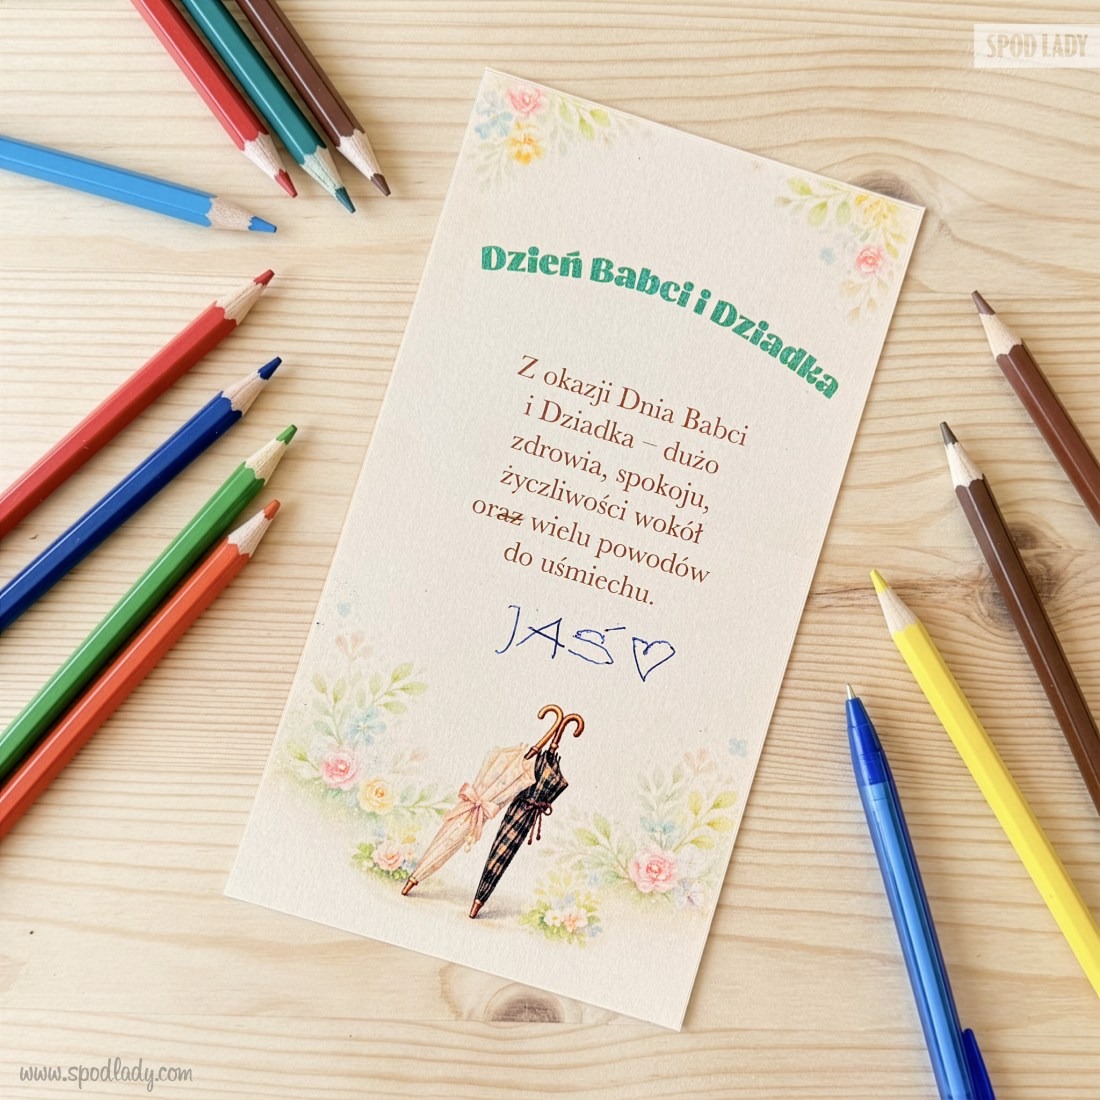 SPOD LADY
Dzień Babci i Dziadka
Z okazji Dnia Babci
i Dziadka – dużo
zdrowia, spokoju,
życzliwości wokół
oraz wielu powodów
do uśmiechu.
JAŚ
www.spodlady.com